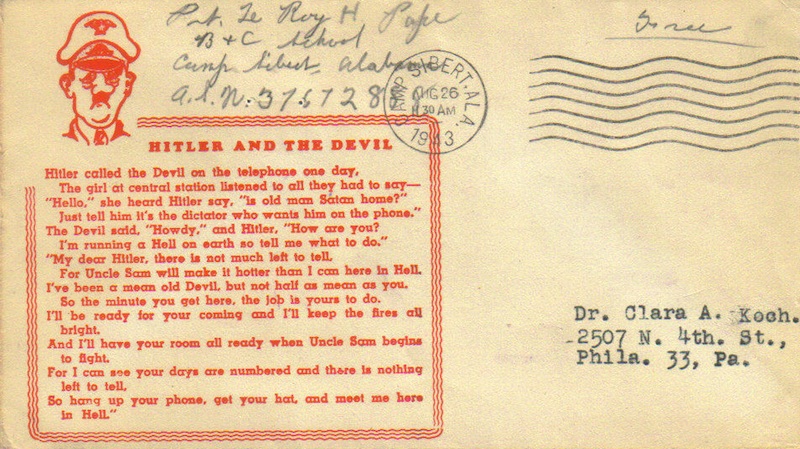 Pvt. Le Roy H. Pope
B & C School
Camp Sibert, Alabama
A.S.N. 376728
Free
CAMP SIBERT, ALA.
AUG 26
30 AM
1943
HITLER AND THE DEVIL
Hitler called the Devil on the telephone one day,
The girl at central station listened to all they had to say—
"Hello," she heard Hitler say, "is old man Satan home?"
Just tell him it's the dictator who wants him on the phone."
The Devil said, "Howdy," and Hitler, "How are you?
I'm running a Hell on earth so tell me what to do."
"My dear Hitler, there is not much left to tell,
For Uncle Sam will make it hotter than I can here in Hell.
I've been a mean old Devil, but not half as mean as you.
So the minute you get here, the job is yours to do.
I'll be ready for your coming and I'll keep the fires all
bright.
And I'll have your room all ready when Uncle Sam begins
to fight.
For I can see your days are numbered and there is nothing
left to tell,
So hang up your phone, get your hat, and meet me here
in Hell."
Dr. Clara A. Koch.
2507 N. 4th. St.,
Phila. 33, Pa.